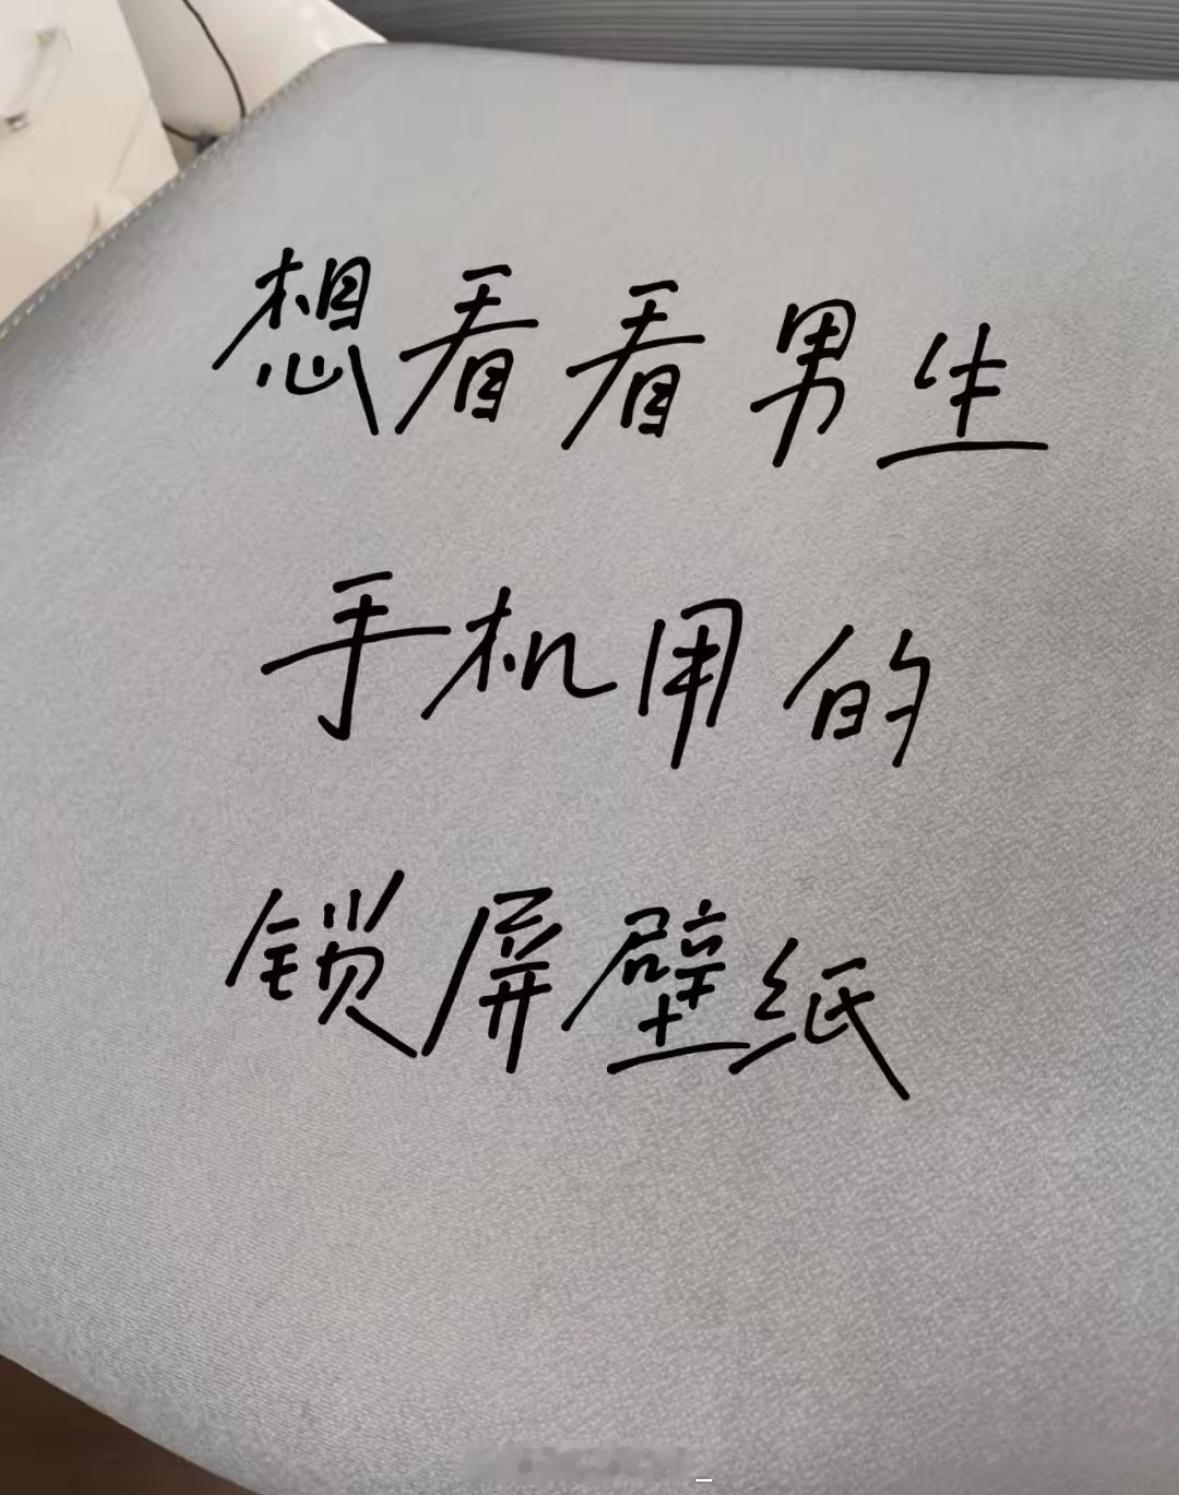 想看看男生
手机用的
锁屏壁纸